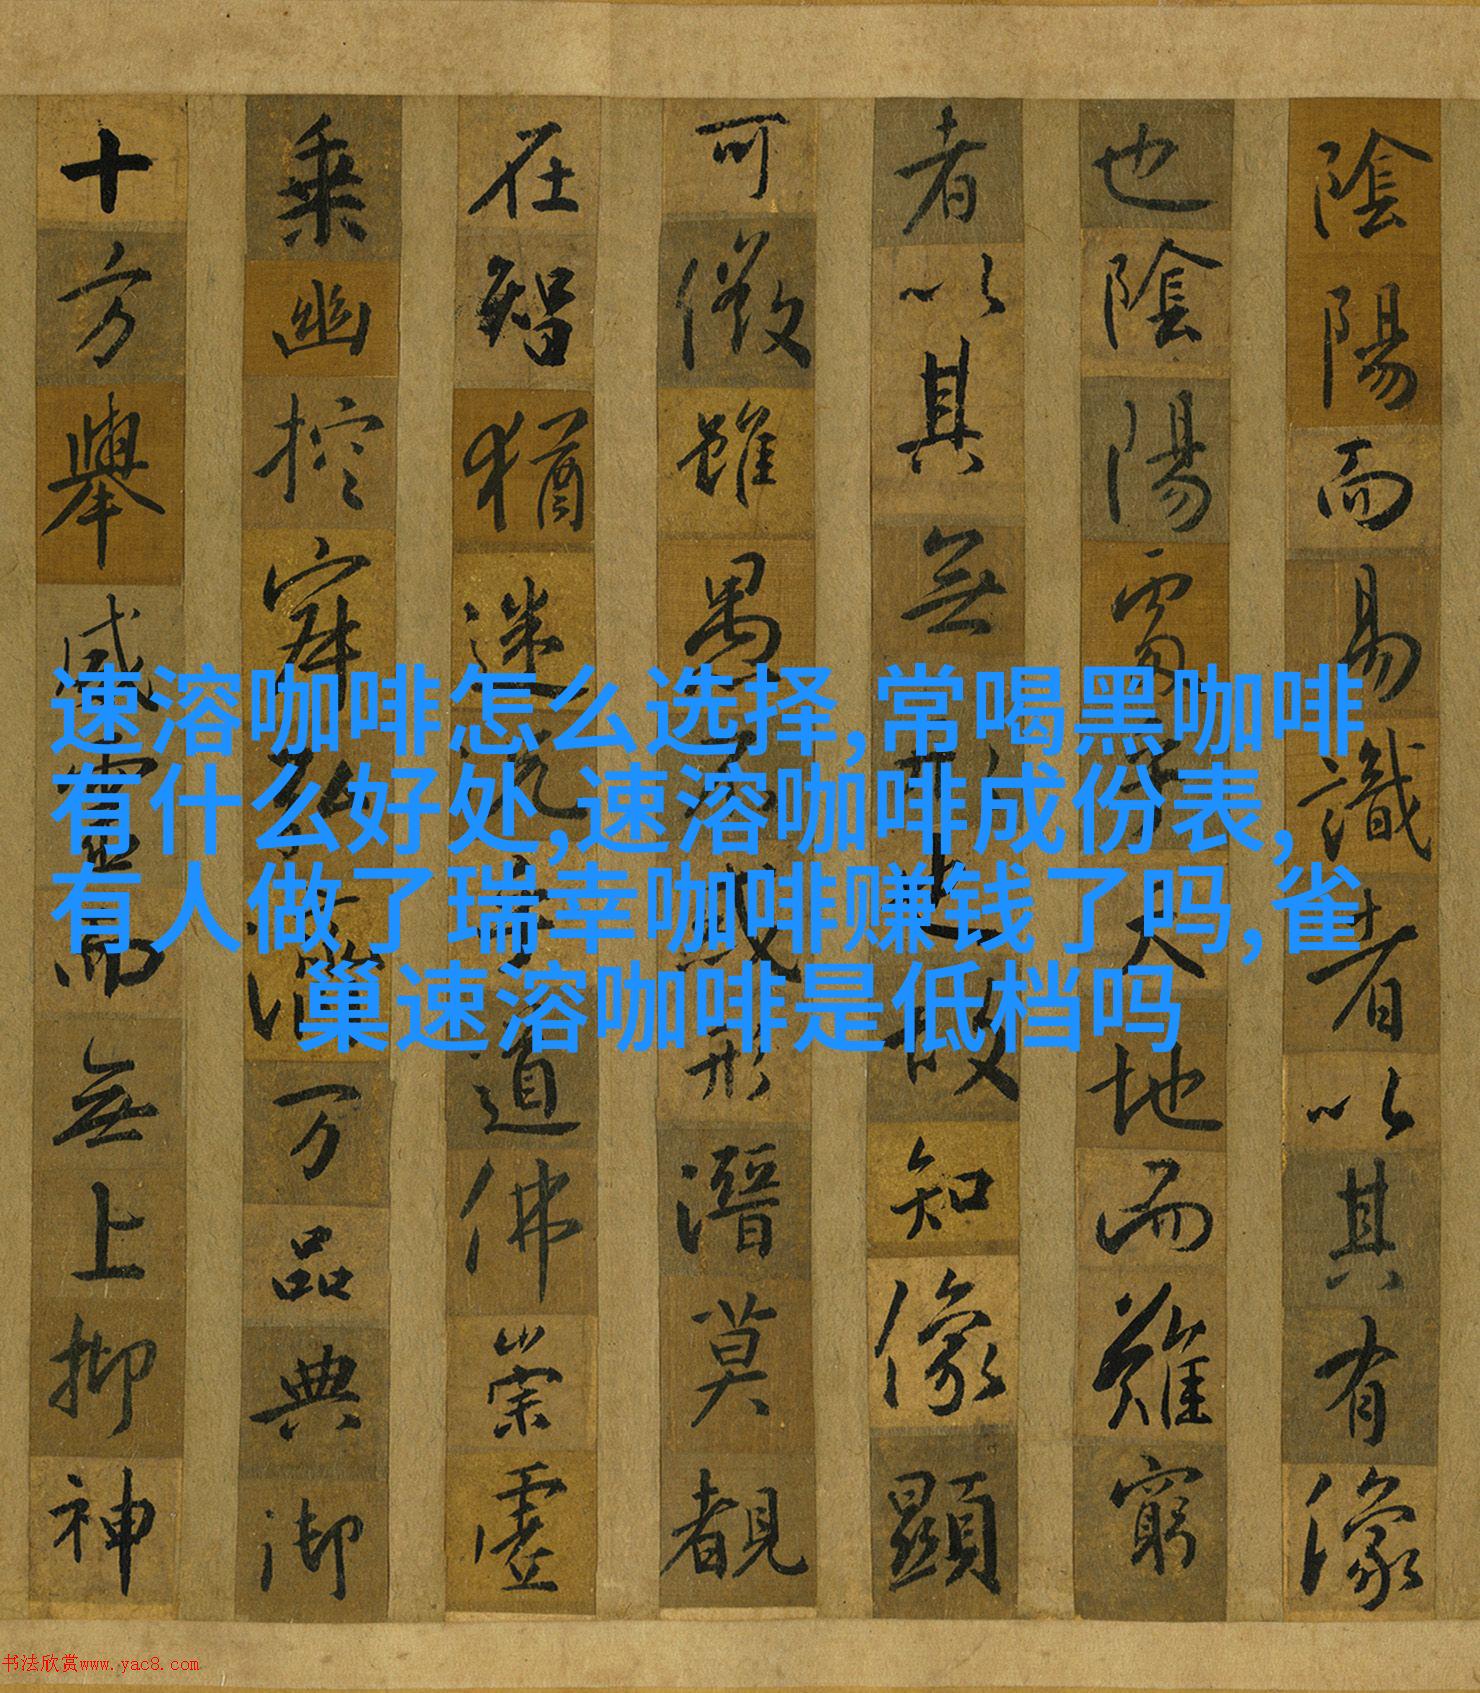 陰陽而易識者以其有像
也陰陽處乎天地而難窮
者以其無形也故知像顯
可徵雖愚不惑形潛莫覩
在智猶迷況乎道佛崇虛
乗幽控寂弘濟万品典御
十方舉威靈而無上抑神
速溶咖啡怎么选择,常喝黑咖啡
有什么好处,速溶咖啡成份表,
有人做了瑞幸咖啡赚钱了吗,雀
巢速溶咖啡是低档吗
书法欣赏www.yac8.com